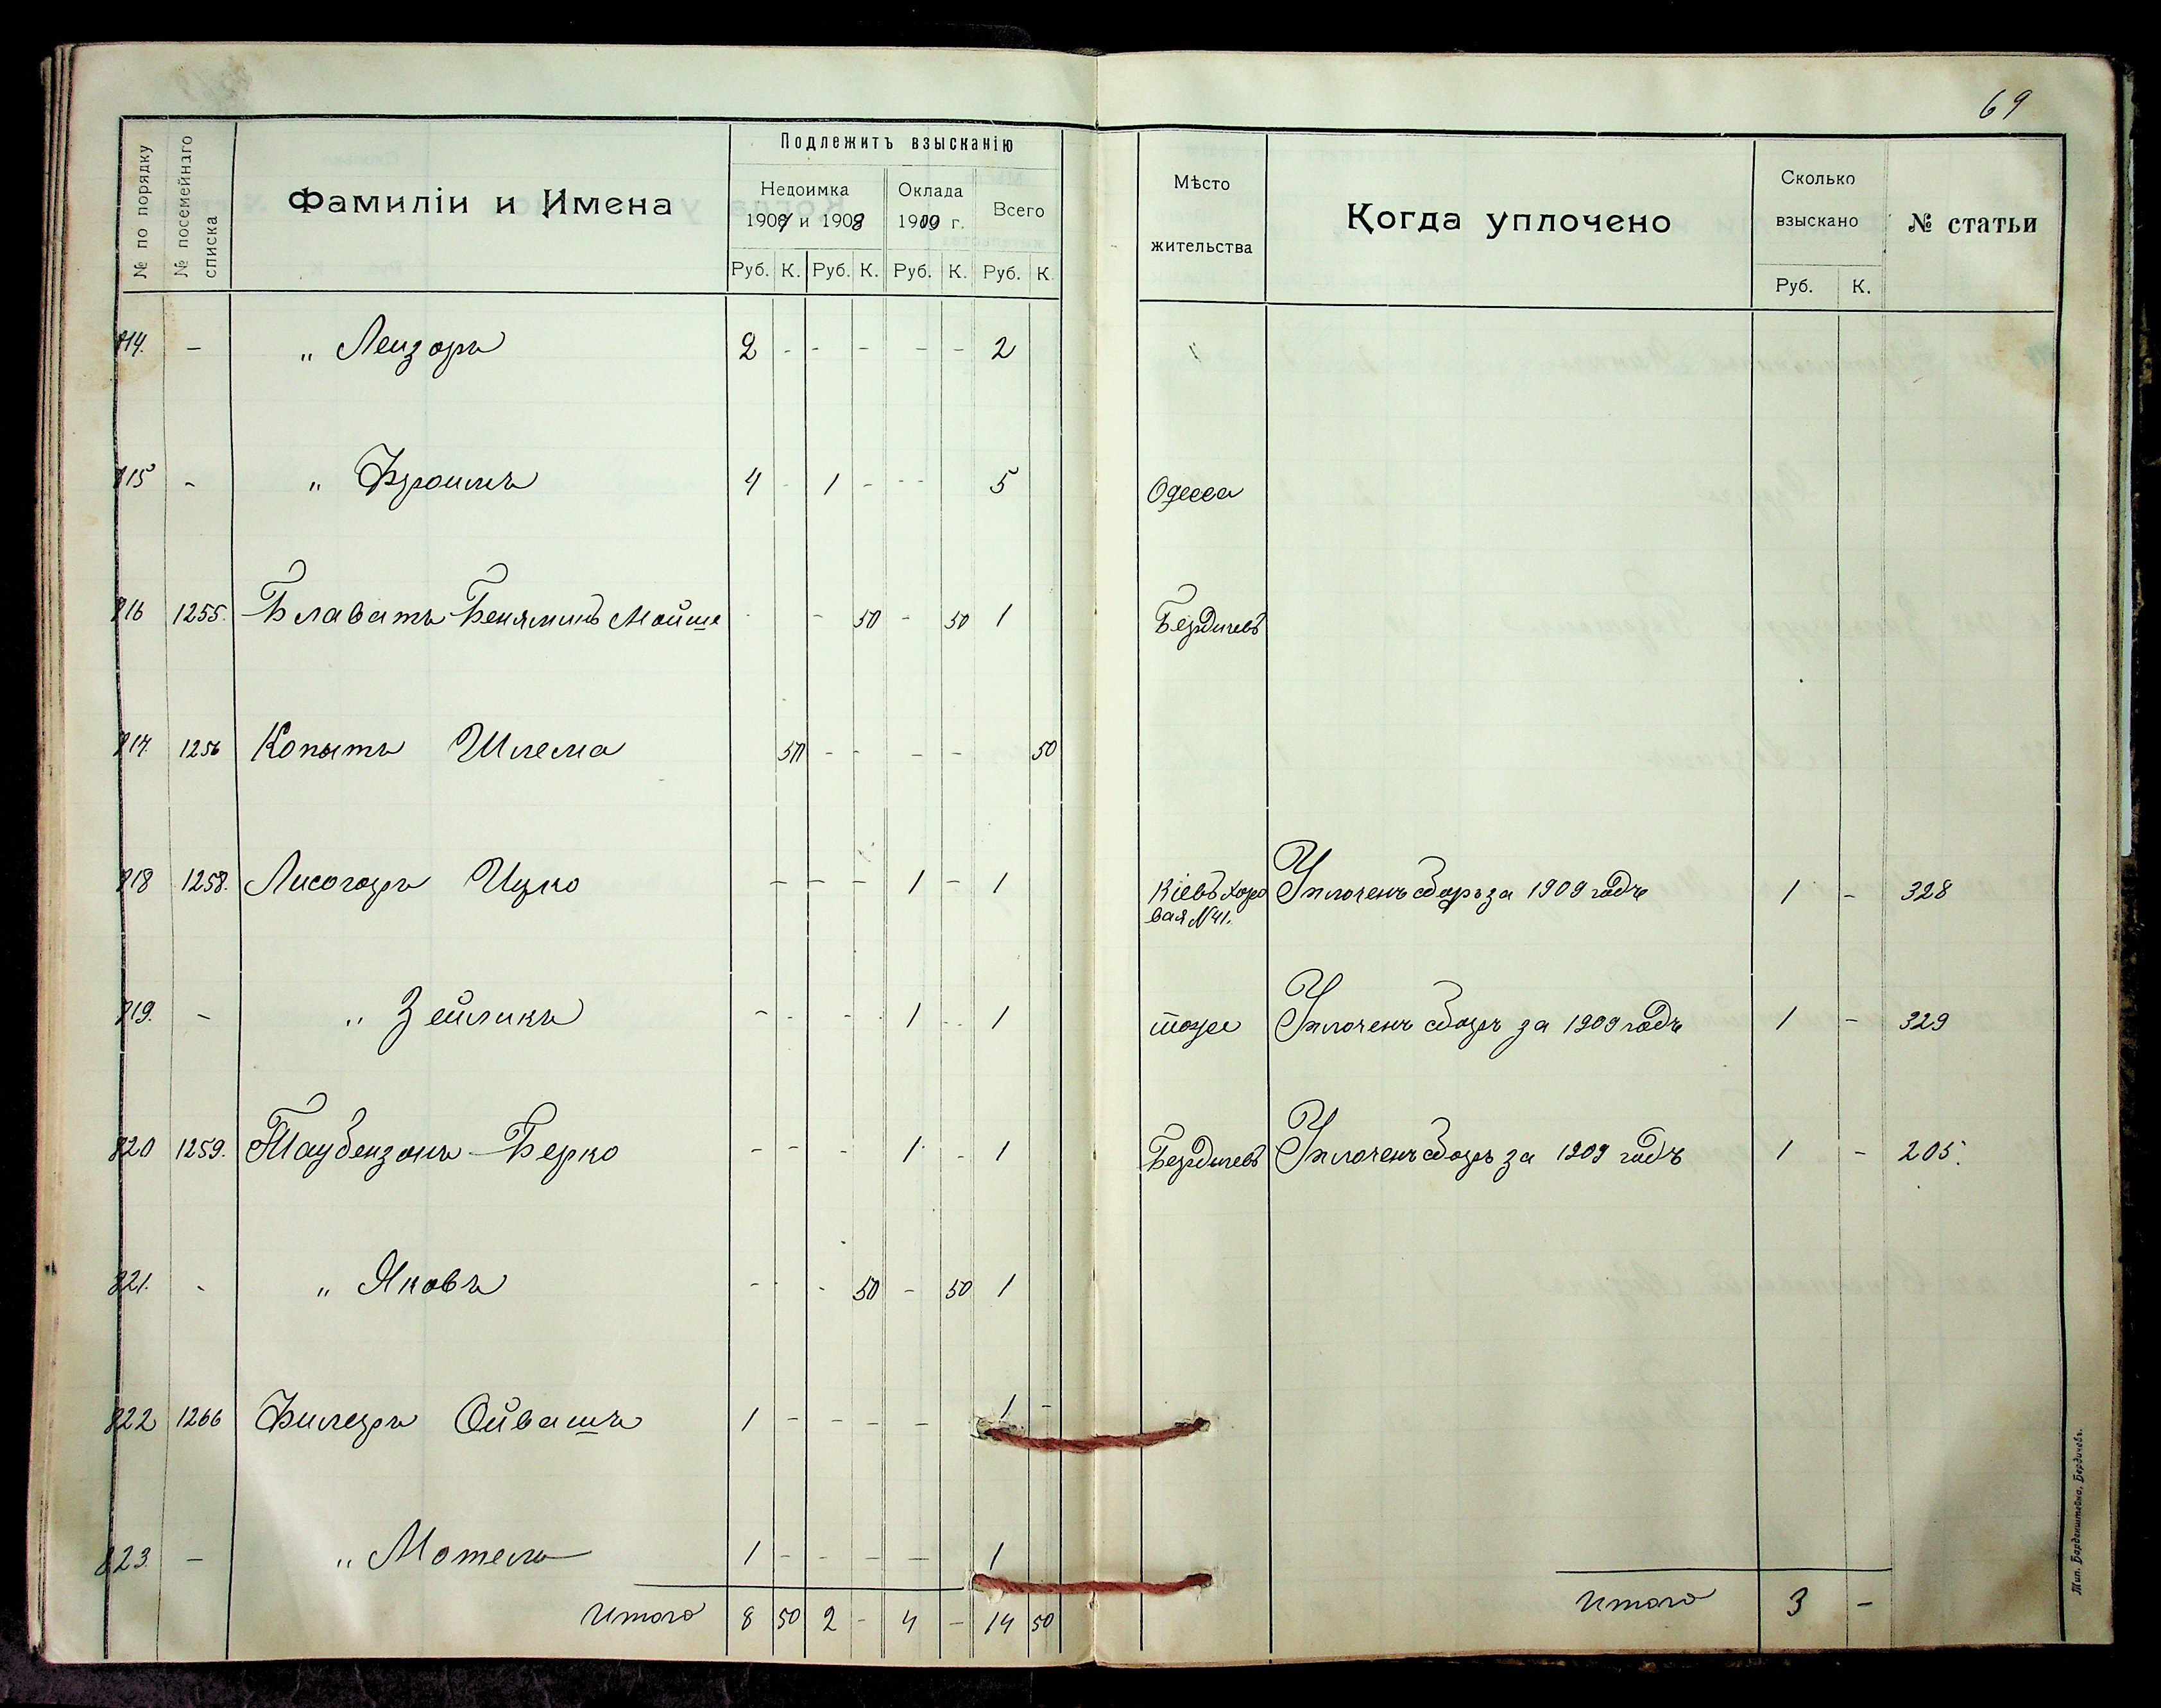 69
№ по порядку
№ посемейнаго списка
Фамиліи и Имена
Подлежитъ взысканію
Недоимка
1907 и 1908
Оклада
1909 г.
Всего
Руб. К. Руб. К. Руб. К. Руб. К
Мѣсто
жительства
Когда уплочено
Сколько
взыскано
Руб. К.
№ статьи
814. - " Лейзоръ 2 - - - - - 2
815 - " Фроимъ 4 - 1 - - - 5 Одесса
816 1255. Блаватъ Беняминъ Мойше - - 50 - 50 1 Бердичевъ
817 1256 Копытъ Шлема 50 - - - - 50
818 1258. Лисогоръ Ицко - - - 1 - 1 Кіевъ Хоре Уплоченъ сборъ за 1909 годъ 1 - 328
вая №41.
819. - " Зейликъ - - - 1 - 1 тоже Уплоченъ сборъ за 1909 годъ 1 - 329
820 1259. Таубензонъ Берко - - - 1 - 1 Бердичевъ Уплоченъ сборъ за 1909 годъ 1 - 205.
821. - " Яковъ - - - 50 - 50 1
822 1266 Филеръ Ойвашъ 1 - - - - 1 -
823. - " Мотель 1 - - - - 1
Итого 8 50 2 - 4 - 14 50 Итого 3 -
Тип. Барденштейна, Бердичевъ.